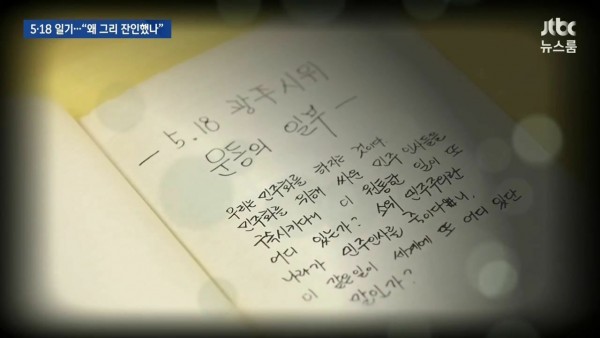 5·18 일기…"왜 그리 잔인했나"
jtbc
뉴스룸
- 5.18 광주시위
운동의 일부 -
우리는 민주화를 하자는 것이다
민주화를 위해 싸운 민주 인사들을
구속시키다니 이 원통한 일이 또
어디 있는가? 소위 민주주의란
나라가 민주인사를 죽이다니,
이 같은일이 세계에 또 어디 있단
말인가?